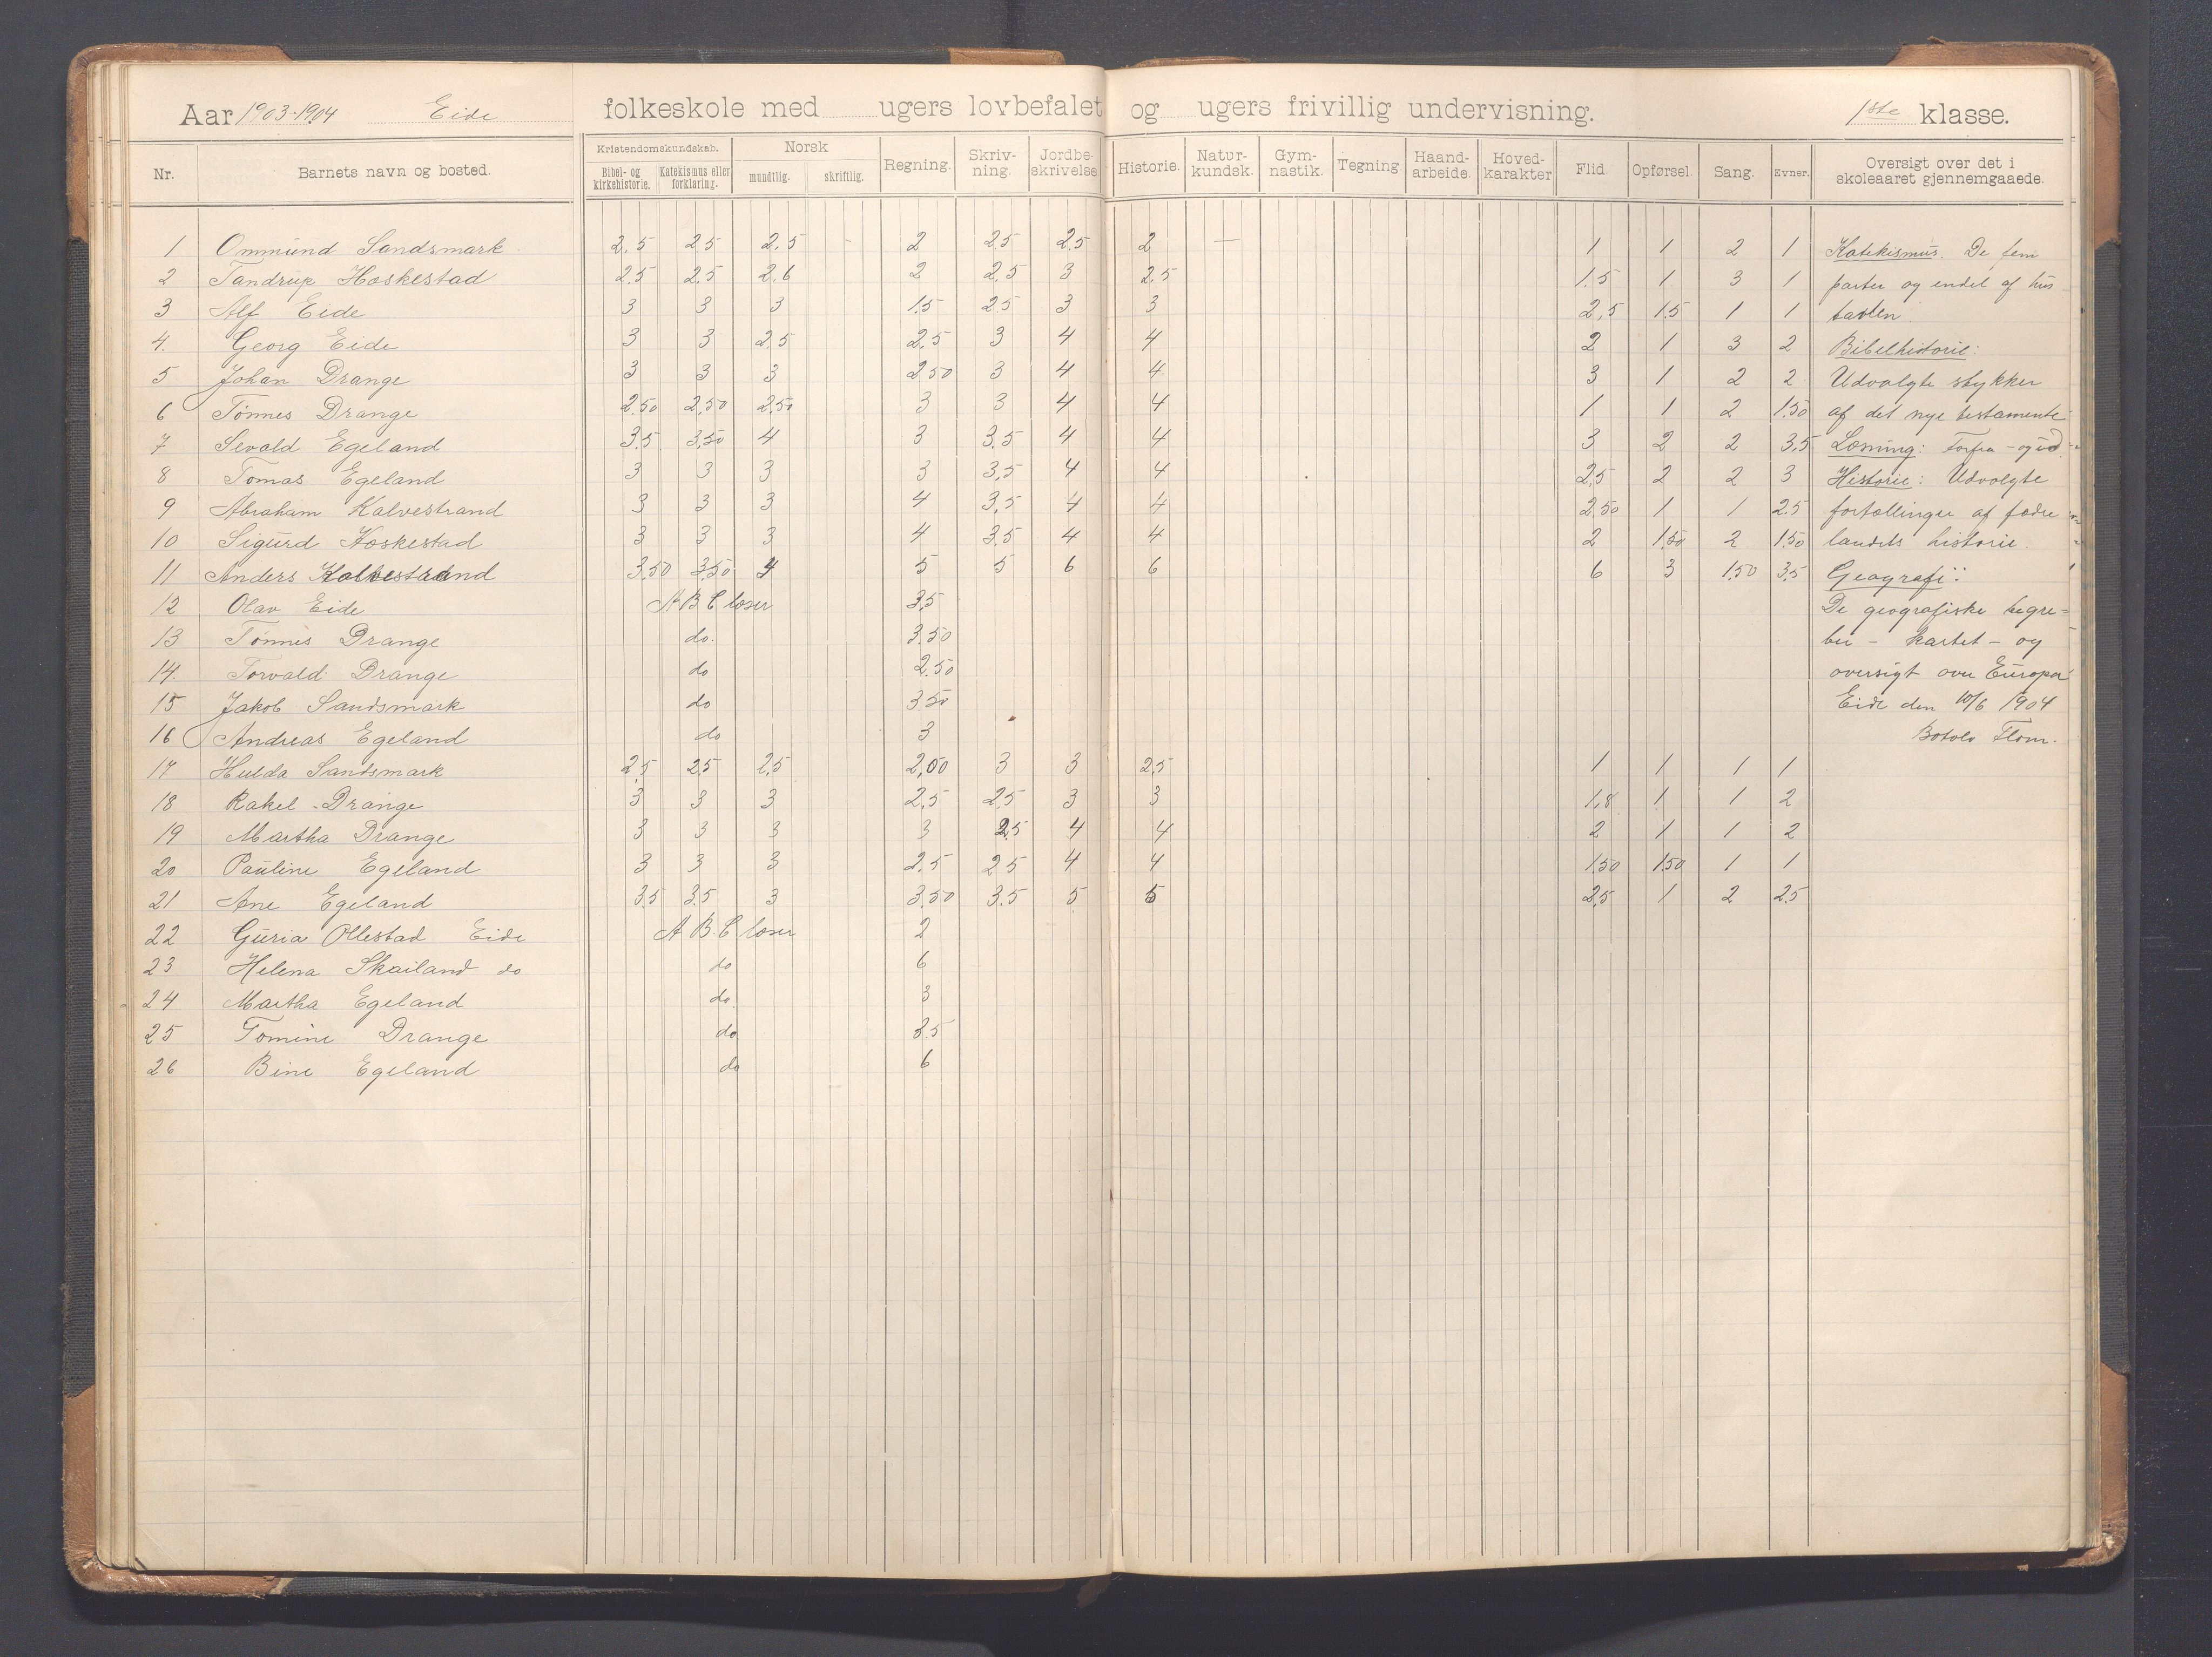 Aar 1903-1904 Eide folkeskole med ugers lovbefalet og ugers frivillig undervisning. 1ste klasse.
Nr. Barnets navn og bosted. Kristendomskundskab. Bibel- og kirkehistorie. Katekismus eller forklaring. Norsk mundtlig. skriftlig. Regning. Skriv-ning. Jordbe-skrivelse Historie. Natur-kundsk. Gym-nastik. Tegning Haand-arbeide. Hoved-karakter Flid. Opførsel. Sang. Evner. Oversigt over det i skoleaaret gjennemgaaede.
1 Ommund Sandsmark 2,5 25 2,5 - 2 25 25 2 — 1 1 2 1 Katekismus. De fem
2 Tandrup Hoskestad 25 2,5 2,6 2 2,5 3 2,5 1.5 1 3 1 parter og endel af hus
3 Alf Eide 3 3 3 15 25 3 3 2,5 15 1 1 tavlen
4. Georg Eide 3 3 25 2.5 3 4 4 2 1 3 2 Bibelhistorie:
5 Johan Drange 3 3 3 2,50 3 4 4 3 1 2 2 Udvalgte stykker
6 Tønnes Drange 2,50 2,50 2,50 3 3 4 4 1 1 2 1.50 af det nye testamente
7 Sevald Egeland 3.5 3,50 4 3 3.5 4 4 3 2 2 3,5 Læsning: Forfra - og ud
8 Tomas Egeland 3 3 3 3 3,5 4 4 25 2 2 3 Historie: Udvalgte
9 Abraham Kalvestrand 3 3 3 4 3,5 4 4 2,50 1 1 25 fortællinger af fædre
10 Sigurd Hoskestad 3 3 3 4 35 4 4 2 150 2 150 landets historie.
11 Anders Kalvestrand 3,50 3,50 4 5 5 6 6 6 3 150 3,5 Geografi:
12 Olav Eide A B C læser 35 De geografiske begre=
13 Tønnes Drange do. 3.50 ber - kartet - og
14. Torvald Drange do 2.50 oversigt over Europa
15 Jakob Sandsmark do 350 Eide den 10/6 1904
16 Andreas Egeland do 3 Botolv Flom.
17 Hulda Sandsmark 2,5 25 2,5 2,00 3 3 2,5 1 1 1 1
18 Rakel Drange 3 3 3 2,5 25 3 3 1,8 1 1 2
19 Martha Drange 3 3 3 3 2,5 4 4 2 1 1 2
20 Pauline Egeland 3 3 3 2,5 25 4 4 150 150 1 1
21 Ane Egeland 35 3.5 3 3,50 3.5 5 5 2,5 1 2 25
22 Guria Ollestad Eide A B C læser 2
23 Helena Skailand do do 6
24 Martha Egeland do. 3
25 Tomine Drange do 35
26 Bine Egeland do 6